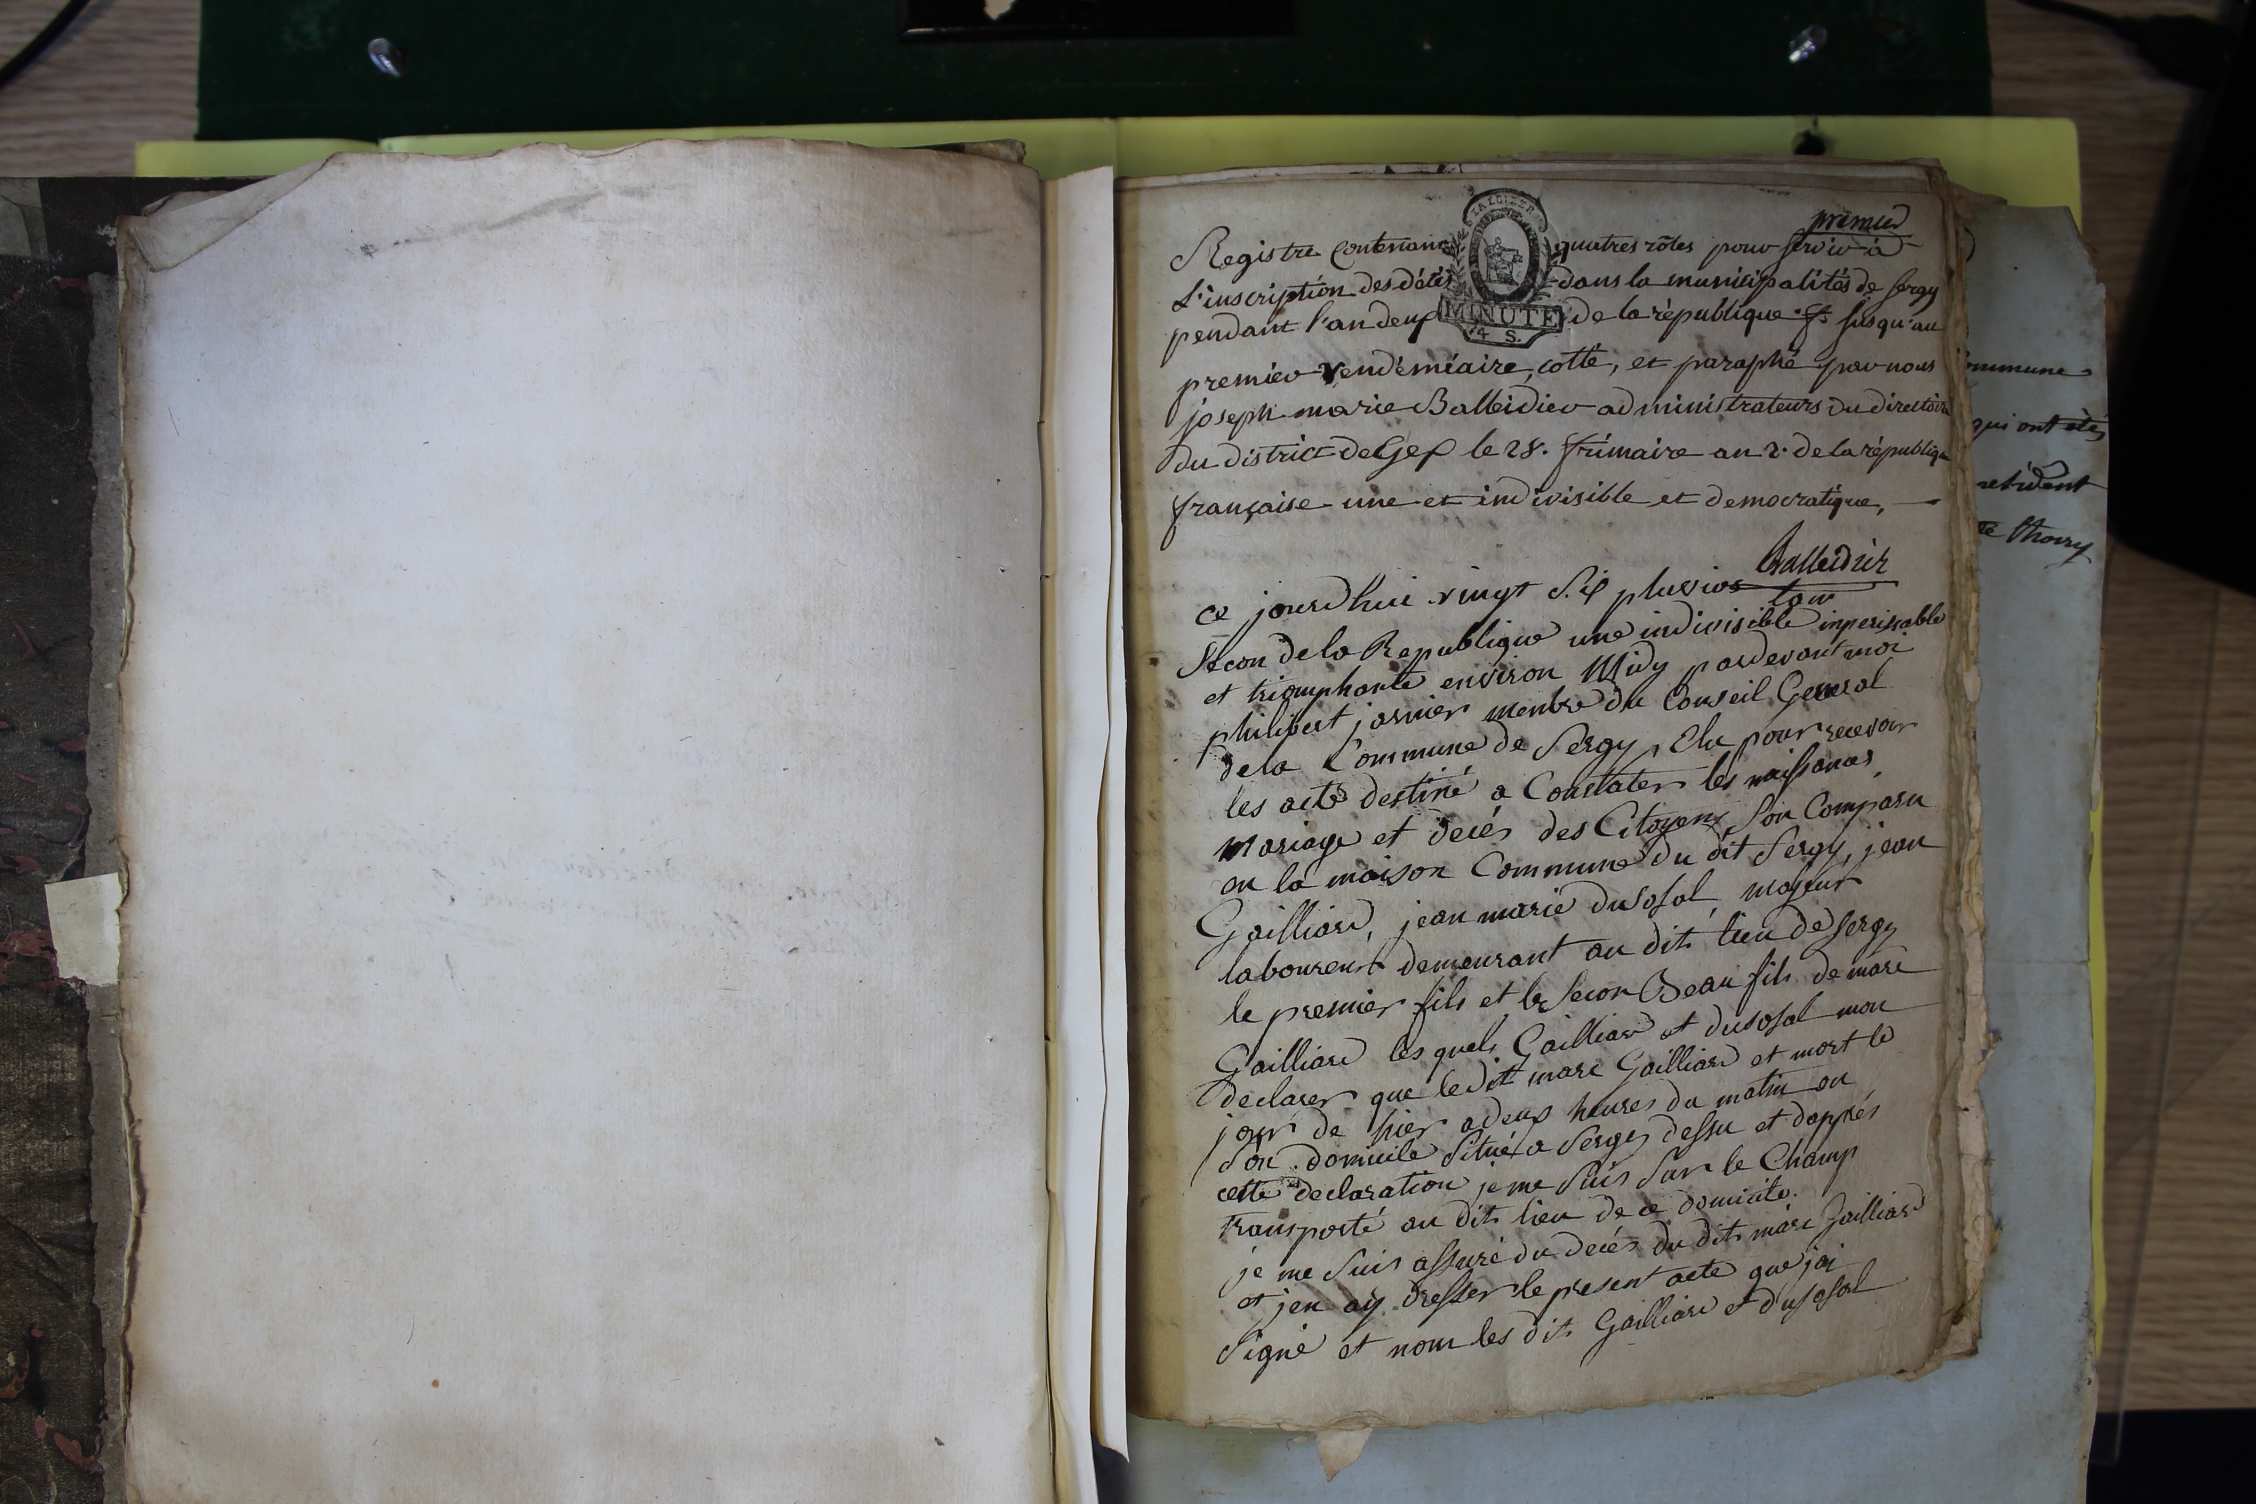 premier
Registre contenant quatres rôles pour servir à
L'inscription des décès dans la municipalités de Sergy
pendant l'an deux de la république fr. jusqu'au
LA LOI LE R
MINUTE
4 S.
premier vendémiaire, cotté, et paraphé par nous
joseph marie Balleidier administrateurs du directoire
du district de Gex le 28. frimaire an 2. de la républiq
française une et indivisible et democratique,
Balleidier
ce jourdhui vingt six pluvios lan
Secon de la Republique une indivisible inperissable
et triomphante environ Midy pardevant moi
philibert jarnier menbre du Conseil General
de la Commune de Sergy, Elu pour recevoir
les acte destiné a Constater les naissances
mariage et decés des Citoyens, Son Comparu
en la maison Commune du dit Sergy, jean
Gailliard, jean marie dusosal, majeur
laboureur demeurant au dit lieu de Sergy
le premier fils et le Secon Beau fils de marc
Gailliard les quels Gailliard et dusosal mon
declarer que le dit marc Gailliard et mort le
jour de hier a deux heures du matin en
Son domicile Situé a Sergy dessu et dapprés
cette declaration je me Suis Sur le Champ
transporté au dit lieu de ce domicile.
je me Suis assuré du decés du dit marc Gailliard
et jen ay dresser le present acte que jai
Signé et nom les dit Gailliard et dusosal
ommune
qui ont étés
résident
te thoiry